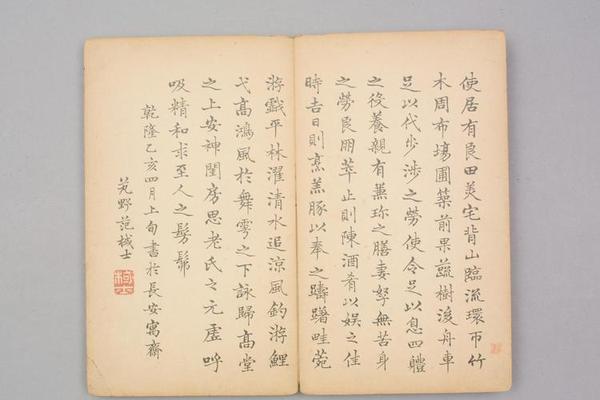 使居有良田美宅背山臨流環帀竹
木周布塲圃築前果蓏樹後舟車
足以代步涉之勞使令足以息四體
之役養親有兼珍之膳妻孥無苦身
之勞良朋萃止則陳酒肴以娛之佳
時吉日則烹羔豚以奉之躊躇畦菀
游戲平林濯清水追涼風釣游鯉
弋高鴻風於舞雩之下詠歸高堂
之上安神閨房思老氏之元虛呼
吸精和求至人之髣髴
乾隆乙亥四月上旬書於長安寓齋
野范棫士